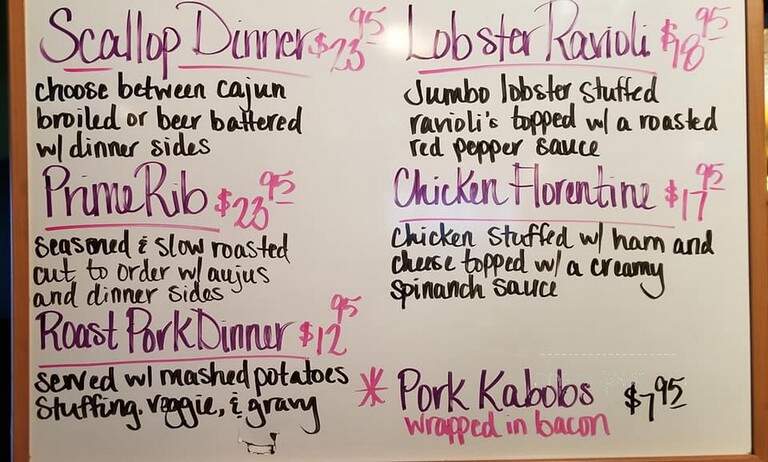 Scallop Dinner $23 95
choose between cajun
broiled or beer battered
w/ dinner sides
Prime Rib $23 95
seasoned & slow roasted
cut to order w/ aujus
and dinner sides
Roast Pork Dinner $12 95
served w/ mashed potatoes
stuffing, veggie, & gravy
Lobster Ravioli $18 95
Jumbo lobster stuffed
ravioli's topped w/ a roasted
red pepper sauce
Chicken Florentine $17 95
Chicken stuffed w/ ham and
cheese topped w/ a creamy
spinanch sauce
* Pork Kabobs $7 95
wrapped in bacon